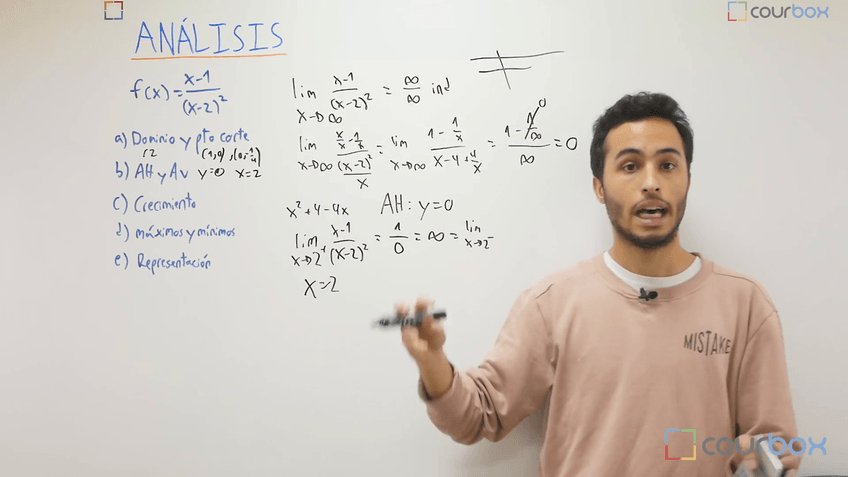 courbox
ANÁLISIS
f(x) = x-1 / (x-2)²
a) Dominio y pto corte
(1,0), (0,-1/4)
b) AH y AV y=0 x=2
c) Crecimiento
d) máximos y mínimos
e) Representación
lim x→∞ x-1 / (x-2)² = ∞/∞ ind
lim x→∞ (x/x - 1/x) / ((x-2)²/x) = lim x→∞ (1 - 1/x) / (x-4+4/x) = (1 - 1/∞) / ∞ = 0
0
x²+4-4x AH: y=0
lim x→2⁺ x-1 / (x-2)² = 1/0 = ∞ = lim x→2⁻
x=2
MISTAKE
courbox